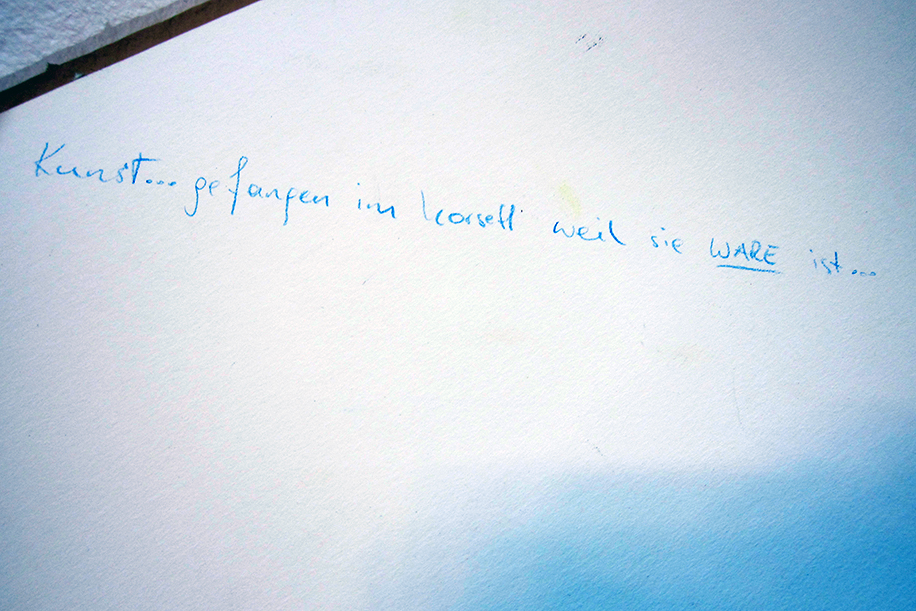 Kunst... gefangen im Korsett weil sie WARE ist...